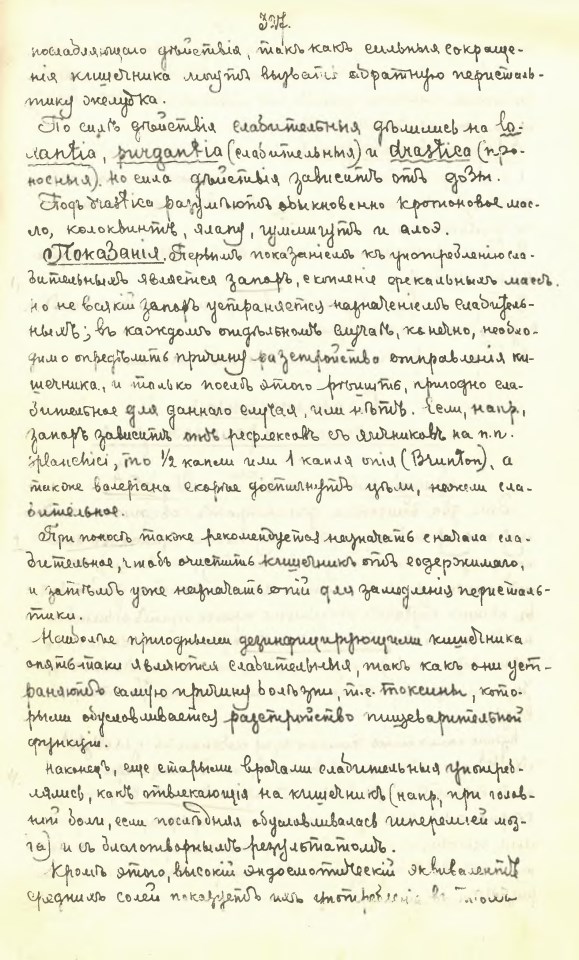 327.
послабляющаго дѣйствія, такъ какъ сильныя сокраще-
нія кишечника могутъ вызвать обратную перисталь-
тику желудка.
По силѣ дѣйствія слабительныя дѣлились на la-
xantia, purgantia (слабительныя) и drastica (про-
носныя), но сила дѣйствія зависитъ отъ дозы.
Подъ drastica разумѣютъ обыкновенно кротоновое мас-
ло, колоквинтъ, ялапу, гуммигутъ и алоэ.
Показанія. Первымъ показаніемъ къ употребленію сла-
бительныхъ является запоръ, скопленіе фекальныхъ массъ,
но не всякій запоръ устраняется назначеніемъ слабитель-
ныхъ; въ каждомъ отдѣльномъ случаѣ, конечно, необхо-
димо опредѣлить причину разстройство отправленія ки-
шечника, и только послѣ этого рѣшить, пригодно сла-
бительное для даннаго случая, или нѣтъ. Если, напр,
запоръ зависитъ отъ рефлексовъ съ яичниковъ на n.n.
splanchici, то 1/2 капли или 1 капля опія (Brunton), а
также валеріана скорѣе достигнутъ цѣли, нежели сла-
бительное.
При поносѣ также рекомендуется назначать сначала сла-
бительное, чтобъ очистить кишечникъ отъ содержимаго,
и затѣмъ уже назначать опій для замедленія перисталь-
тики.
Наиболѣе пригодными дезинфицирующими кишечника
опять-таки являются слабительныя, такъ какъ они уст-
раняютъ самую причину болѣзни, т.е. токсины, кото-
рыми обусловливается разстройство пищеварительной
функціи.
Наконецъ, еще старыми врачами слабительныя употреб-
лялись, какъ отвлекающія на кишечникъ (напр, при голов-
ной боли, если послѣдняя обусловливалась гипереміей моз-
га) и съ благотворнымъ результатомъ.
Кромѣ этого, высокій эндосмотическій эквивалентъ
среднихъ солей показуетъ ихъ употребленіе